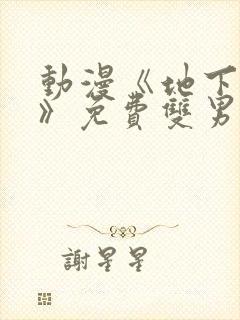 動漫《地下
》免費雙男
謝星星